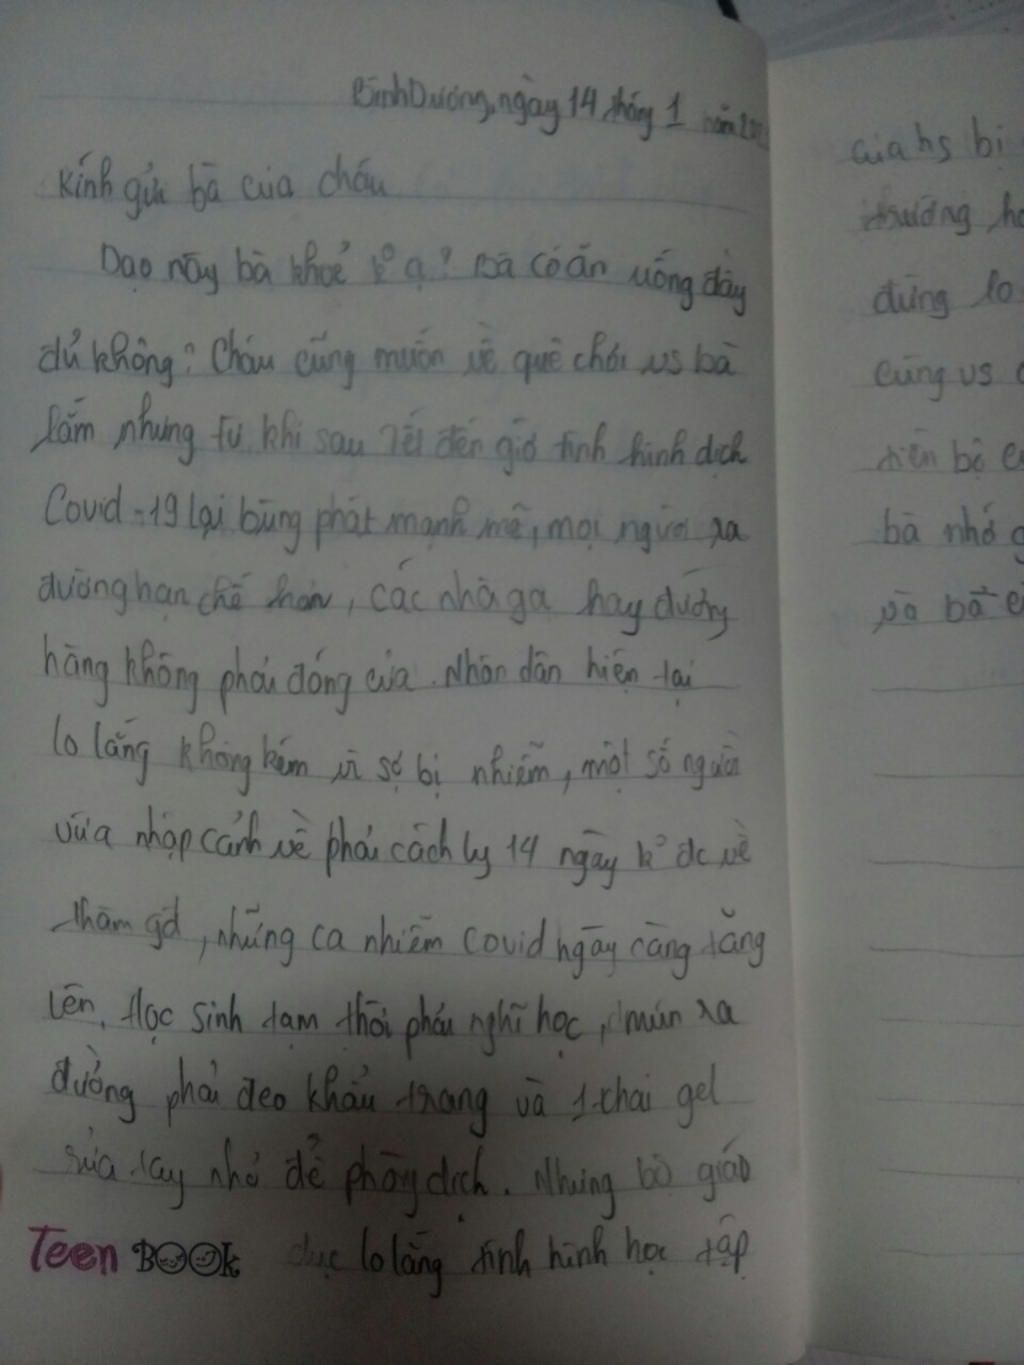 Bình Dương, ngày 14 tháng 1 năm
Kính gửi bà của cháu
Dạo này bà khoẻ k° ạ? Bà có ăn uống đầy
đủ không? Cháu cũng muốn về quê chơi vs bà
lắm nhưng từ khi sau Tết đến giờ tình hình dịch
Covid-19 lại bùng phát mạnh mẽ, mọi người ra
đường hạn chế hơn, các nhà ga hay đường
hàng không phải đóng cửa. Nhân dân hiện tại
lo lắng không kém vì sợ bị nhiễm, một số người
vừa nhập cảnh về phải cách ly 14 ngày k° đc về
thăm gđ, những ca nhiễm covid ngày càng tăng
lên. Học sinh tạm thời phải nghĩ học, mún ra
đường phải đeo khẩu trang và 1 chai gel
rửa tay nhỏ để phòng dịch. Nhưng bộ giáo
dục lo lắng tình hình học tập
Teen BOOK
của hs bị
trường
đừng lo
cùng vs
tiến bộ
bà nhớ
và bà